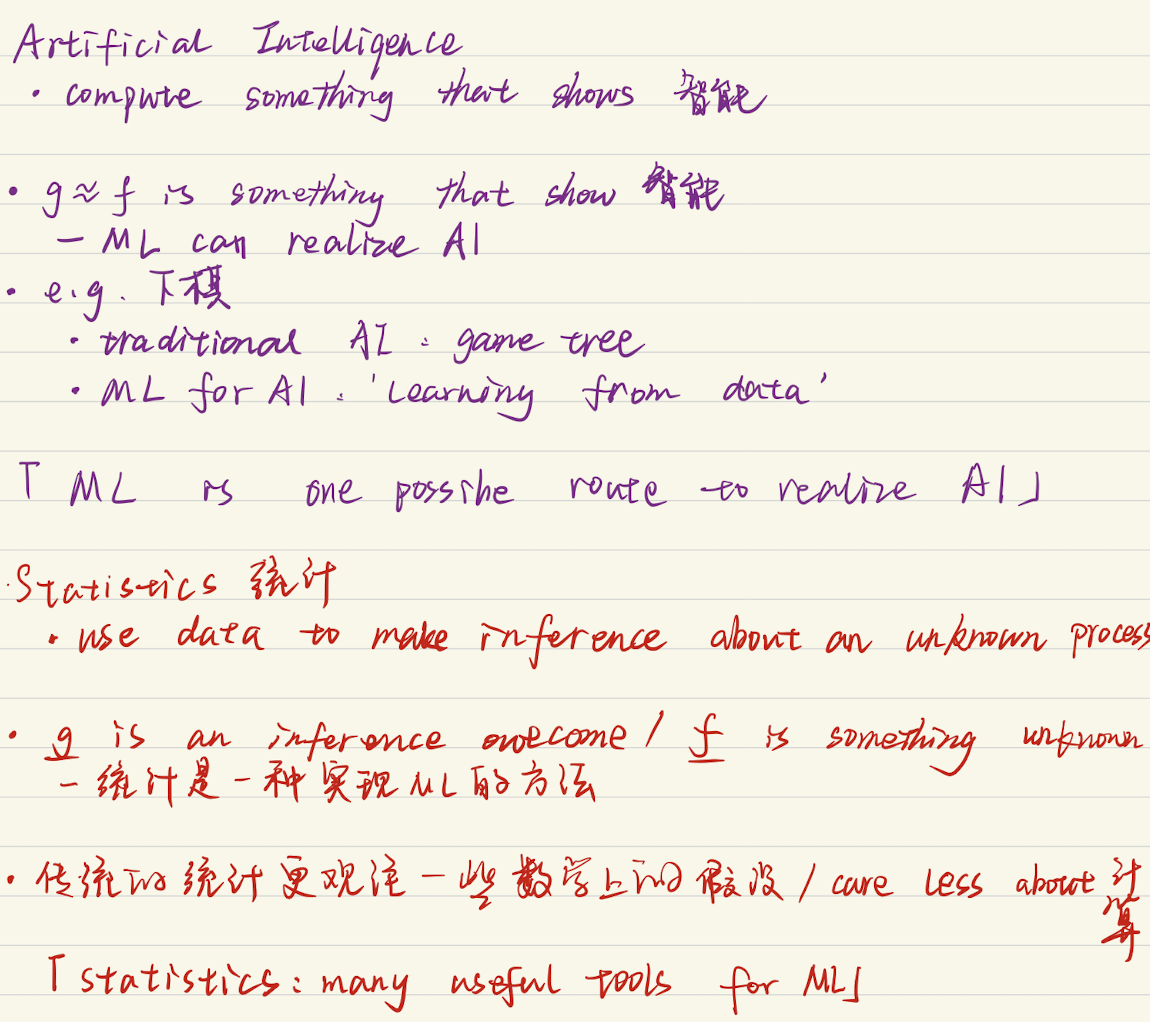 Artificial Intelligence
• compute something that shows 智能
• g ≈ f is something that show 智能
— ML can realize AI
• e.g. 下棋
• traditional AI : game tree
• ML for AI : 'Learning from data'
「 ML is one possible route to realize AI 」
· Statistics 统计
• use data to make inference about an unknown process
• g is an inference outcome / f is something unknown
– 统计是一种实现ML的方法
• 传统的统计更观注一些数学上的假设 / care less about 计算
「 statistics : many useful tools for ML 」